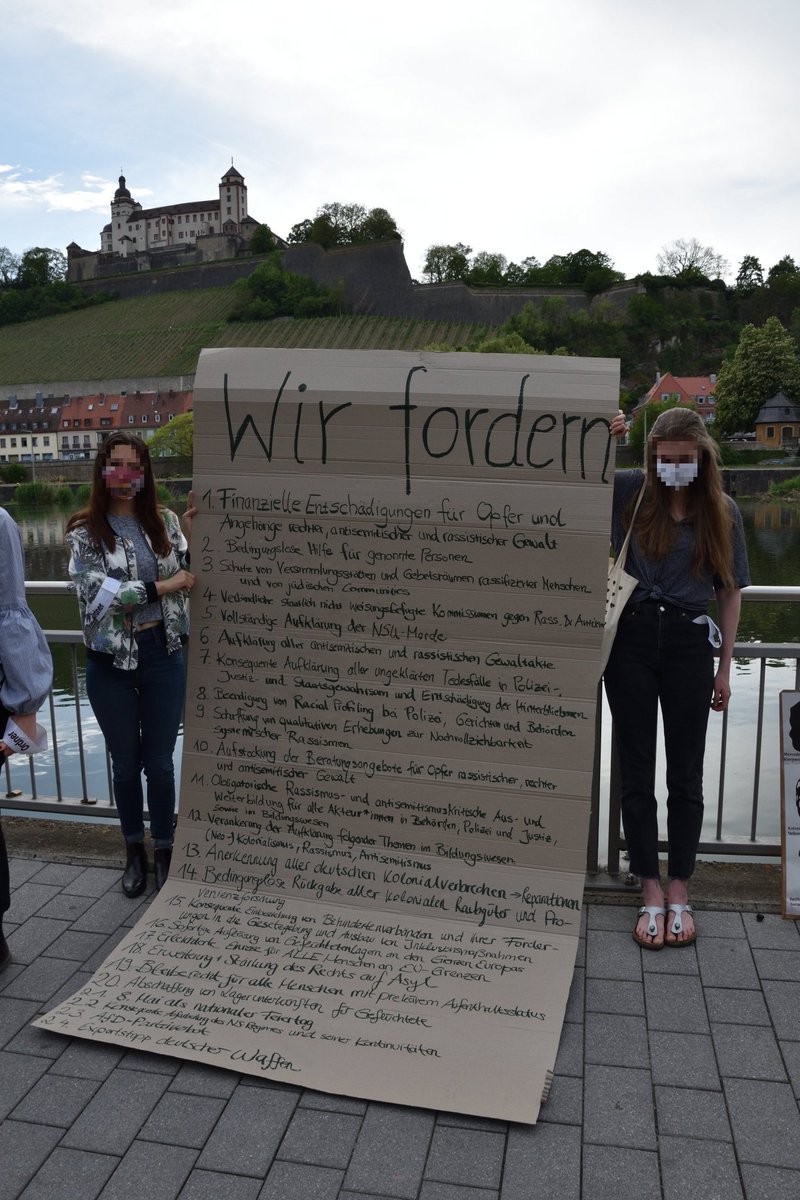 Wir fordern
1. Finanzielle Entschädigungen für Opfer und
Angehörige rechter, antisemitischer und rassistischer Gewalt
2. Bedingungslose Hilfe für genannte Personen
3. Schutz von Versammlungsstätten und Gebetsräumen rassifizierter Menschen
und von jüdischen Communities
4. Verbindliche staatlich nicht weisungsbefugte Kommissionen gegen Rass. & Antisem
5. Vollständige Aufklärung der NSU-Morde
6. Aufklärung aller antisemitischen und rassistischen Gewaltakte
7. Konsequente Aufklärung aller ungeklärten Todesfälle in Polizei-,
Justiz- und Staatsgewahrsam und Entschädigung der Hinterbliebenen
8. Beendigung von Racial Profiling bei Polizei, Gerichten und Behörden
9. Schaffung von qualitativen Erhebungen zur Nachvollziehbarkeit
systemischer Rassismen
10. Aufstockung der Beratungsangebote für Opfer rassistischer, rechter
und antisemitischer Gewalt
11. Obligatorische Rassismus- und antisemitismuskritische Aus- und
Weiterbildung für alle Akteur*innen in Behörden, Polizei und Justiz,
sowie im Bildungswesen
12. Verankerung der Aufklärung folgender Themen im Bildungswesen:
(Neo-)Kolonialismus, Rassismus, Antisemitismus
13. Anerkennung aller deutschen Kolonialverbrechen → Reparationen
14. Bedingungslose Rückgabe aller kolonialen Raubgüter und Pro-
venienzforschung
15. Konsequente Einbeziehung von Behindertenverbänden und ihrer Forder-
ungen in die Gesetzgebung und Ausbau von Inklusionsmaßnahmen
16. Sofortige Auflösung von Geflüchtetenlagern an den Grenzen Europas
17. Erleichterte Einreise für ALLE Menschen an EU-Grenzen
18. Erweiterung & Stärkung des Rechts auf Asyl
19. Bleiberecht für alle Menschen mit prekärem Aufenthaltsstatus
20. Abschaffung von Lagerunterkünften für Geflüchtete
21. 8. Mai als nationaler Feiertag
22. Konsequente Aufarbeitung des NS Regimes und seiner Kontinuitäten
23. AfD-Parteiverbot
24. Exportstopp deutscher Waffen